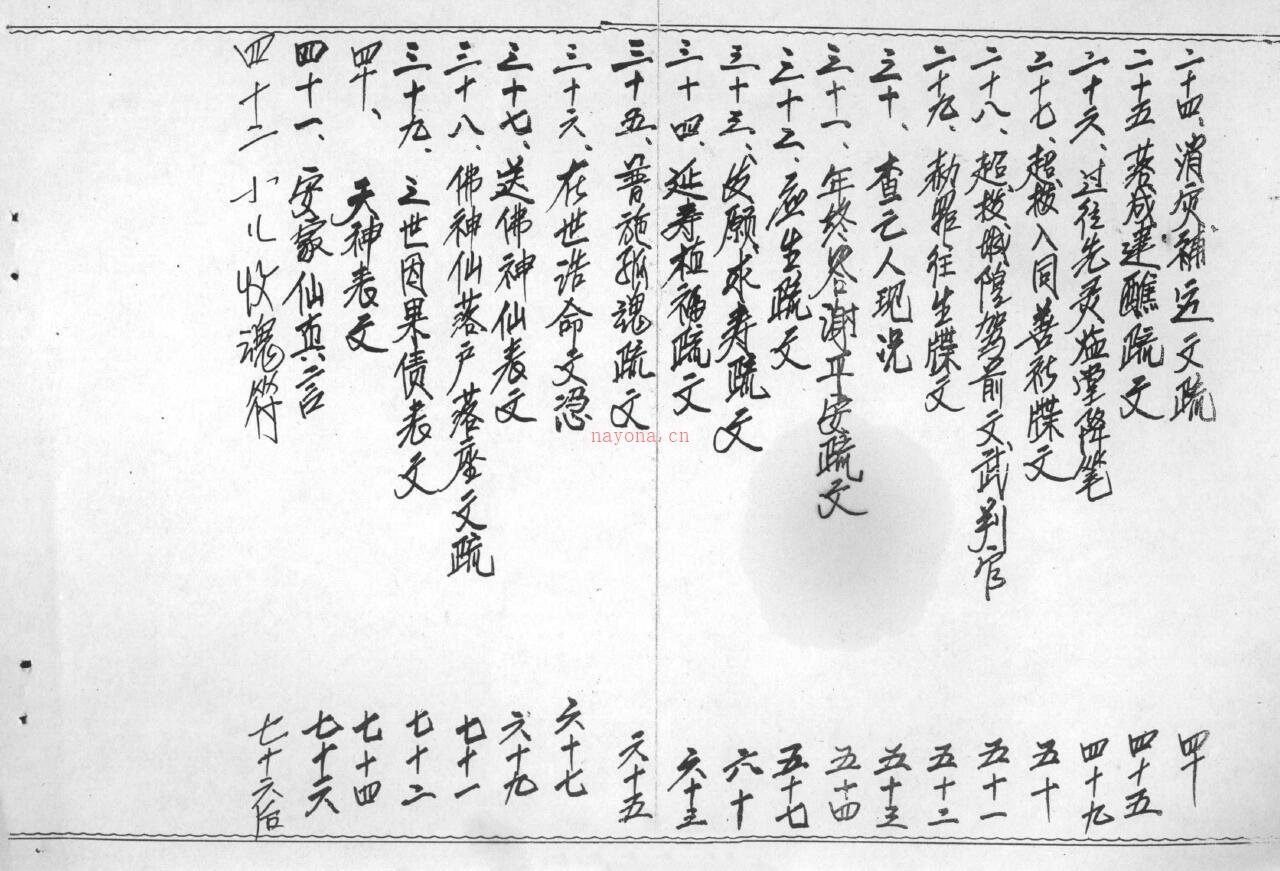 二十四、消灾補运文疏 四十
二十五 落成建醮疏文 四十五
二十六、过往先灵 堂降笔 四十九
二十七、超拨入同善社牒文 五十
二十八、超拨城隍驾前文武判官 五十一
二十九、赦罪往生牒文 五十二
三十、查亡人现况 五十三
三十一、年终答谢平安疏文 五十四
三十二、应生疏文 五十七
三十三、发願求寿疏文 六十
三十四、延寿植福疏文 六十三
三十五、普施孤魂疏文 六十五
三十六、在世诰命文凭 六十七
三十七、送佛神仙表文 六十九
三十八、佛神仙落户落座文疏 七十一
三十九、三世因果债表文 七十二
四十、天神表文 七十四
四十一、安家仙真言 七十六
四十二 小儿收魂符 七十六后
nayona.cn